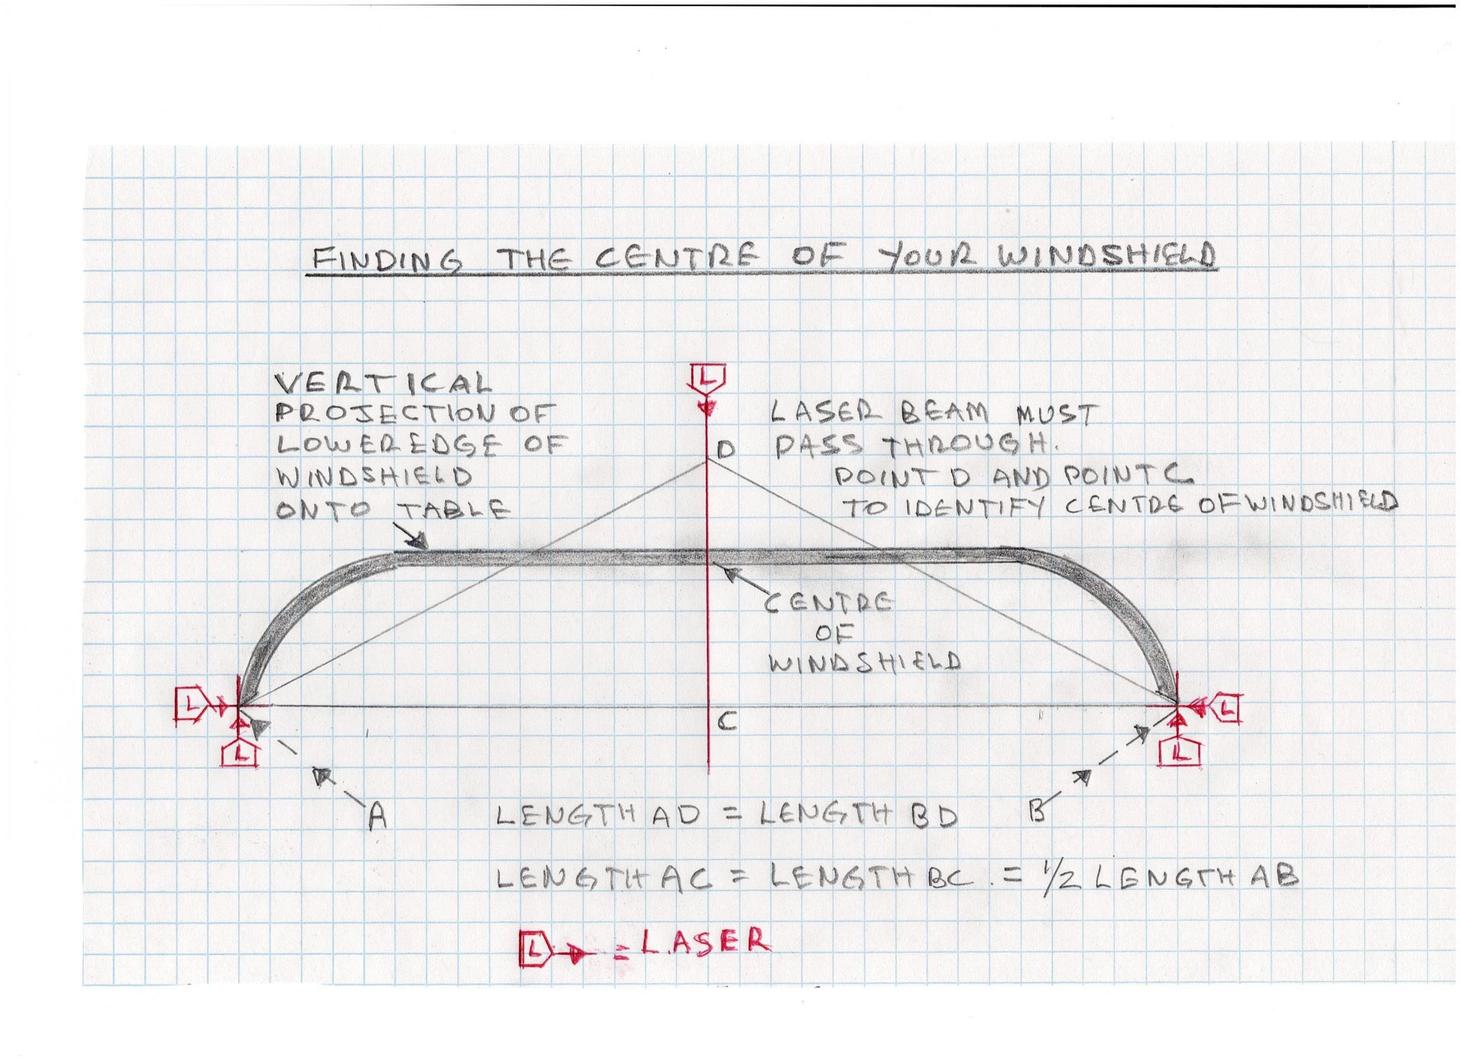 FINDING THE CENTRE OF YOUR WINDSHIELD
VERTICAL
PROJECTION OF
LOWER EDGE OF
WINDSHIELD
ONTO TABLE
L
D
LASER BEAM MUST
PASS THROUGH.
POINT D AND POINT C
TO IDENTIFY CENTRE OF WINDSHIELD
CENTRE
OF
WINDSHIELD
L
L
C
L
L
A
B
LENGTH AD = LENGTH BD
LENGTH AC = LENGTH BC. = 1/2 LENGTH AB
L = LASER